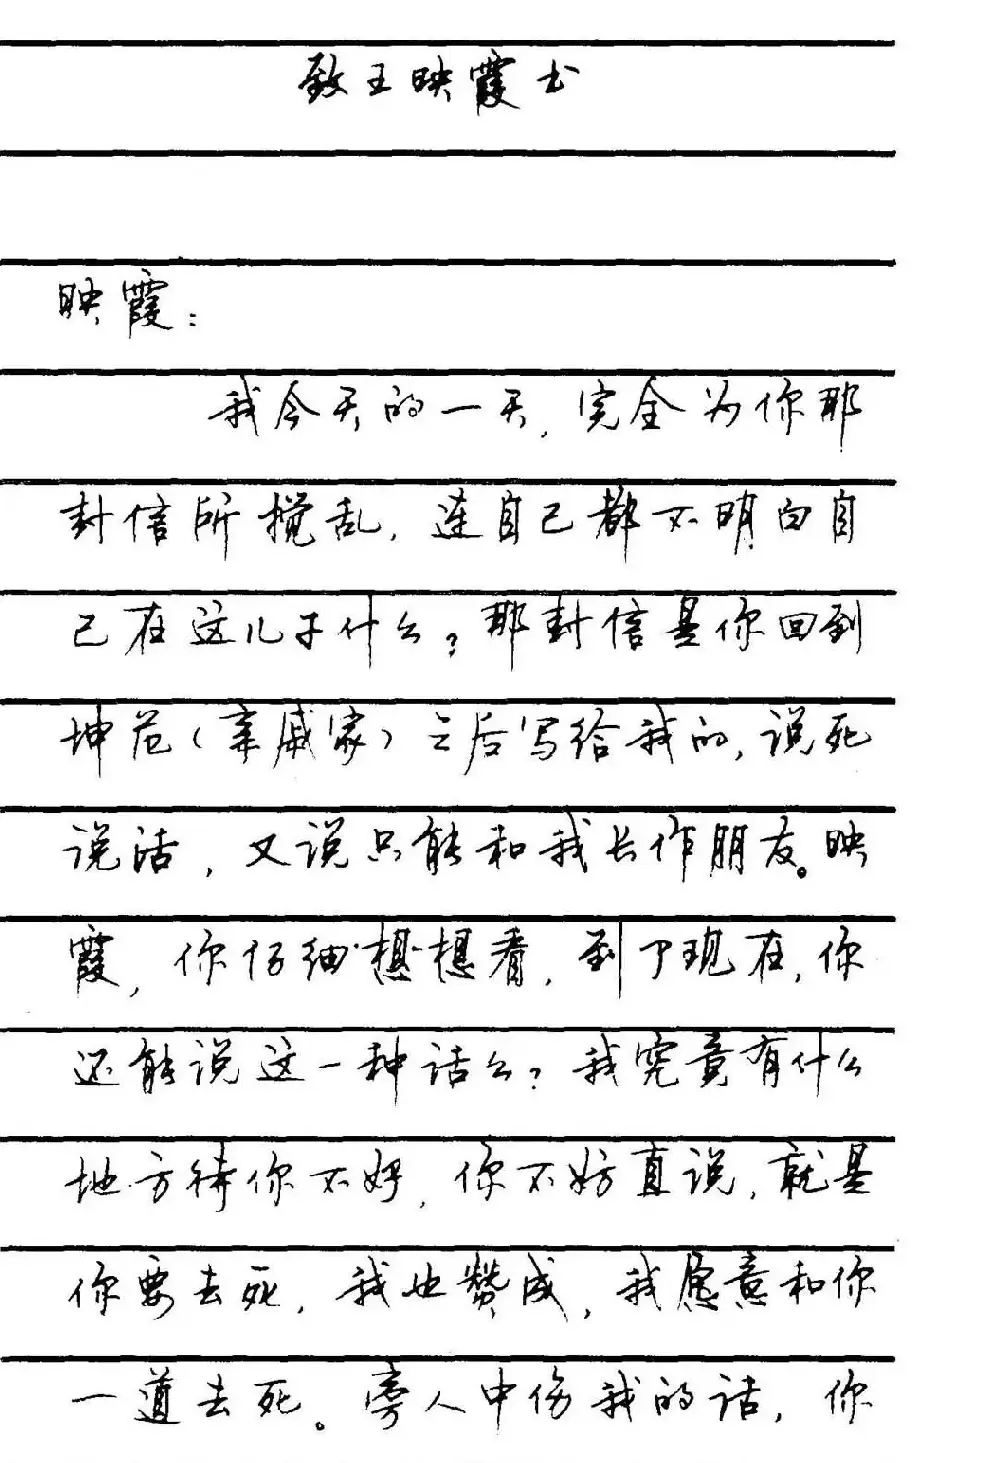 致王映霞书
映霞：
我今天的一天，完全为你那
封信所搅乱，连自己都不明白自
己在这儿干什么？那封信是你回到
坤范（亲戚家）之后写给我的，说死
说活，又说只能和我长作朋友。映
霞，你仔细想想看，到了现在，你
还能说这一种话么？我究竟有什么
地方待你不好，你不妨直说，就是
你要去死，我也赞成，我愿意和你
一道去死。旁人中伤我的话，你